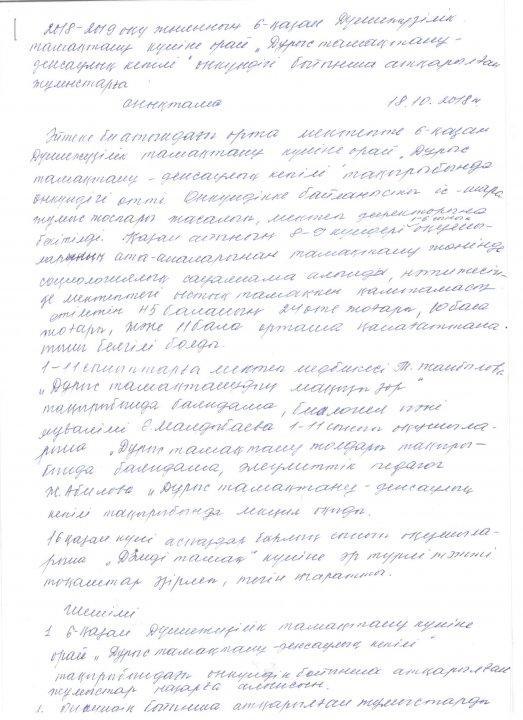 2018-2019 оқу жылының 6-қазан Дүниежүзілік
тамақтану күніне орай „Дұрыс тамақтану-
денсаулық кепілі" онкүндігі бойынша атқарылған
жұмыстарға
анықтама 18.10.2018ж
Әйтеке би атындағы орта мектепте 6-қазан
Дүниежүзілік тамақтану күніне орай „Дұрыс
тамақтану - денсаулық кепілі" тақырыбында
онкүндігі өтті. Онкүндікке байланысты іс-шара
жұмыс жоспары жасалып, мектеп директорына
бекітілді. Қазан айының 8-9 күндері оқушы-
ларының ата-аналарынан тамақтану жөнінде
социологиялық сауалнама алынды, нәтижесін-
де мектептегі ыстық тамақпен қамтамасыз
етілетін 45 баланың 24 өте жоғары, 10 бала
жоғары, және 11 бала орташа қанағаттана-
тыны белгілі болды.
1-11 сыныптарға мектеп медбикесі
„Дұрыс тамақтанудың маңызы зор"
тақырыбында баяндама, биология пәні
мұғалімі 1-11 сынып оқушыла-
рына „Дұрыс тамақтану жолдары тақыры-
бында баяндама, әлеуметтік педагог
Ж.Абилова „Дұрыс тамақтану - денсаулық
кепілі тақырыбында лекция оқыды.
16 қазан күні асханадан барлық сынып оқушыла-
рына „Дәмді тамақ" күніне әр түрлі тәтті
тоқаштар әзірлеп, тегін таратты.
Шешімі
1 6-қазан Дүниежүзілік тамақтану күніне
орай „Дұрыс тамақтану-денсаулық кепілі"
тақырыбындағы онкүндік бойынша атқарылған
жұмыстар назарға алынсын.
бойынша атқарылған жұмыстарды